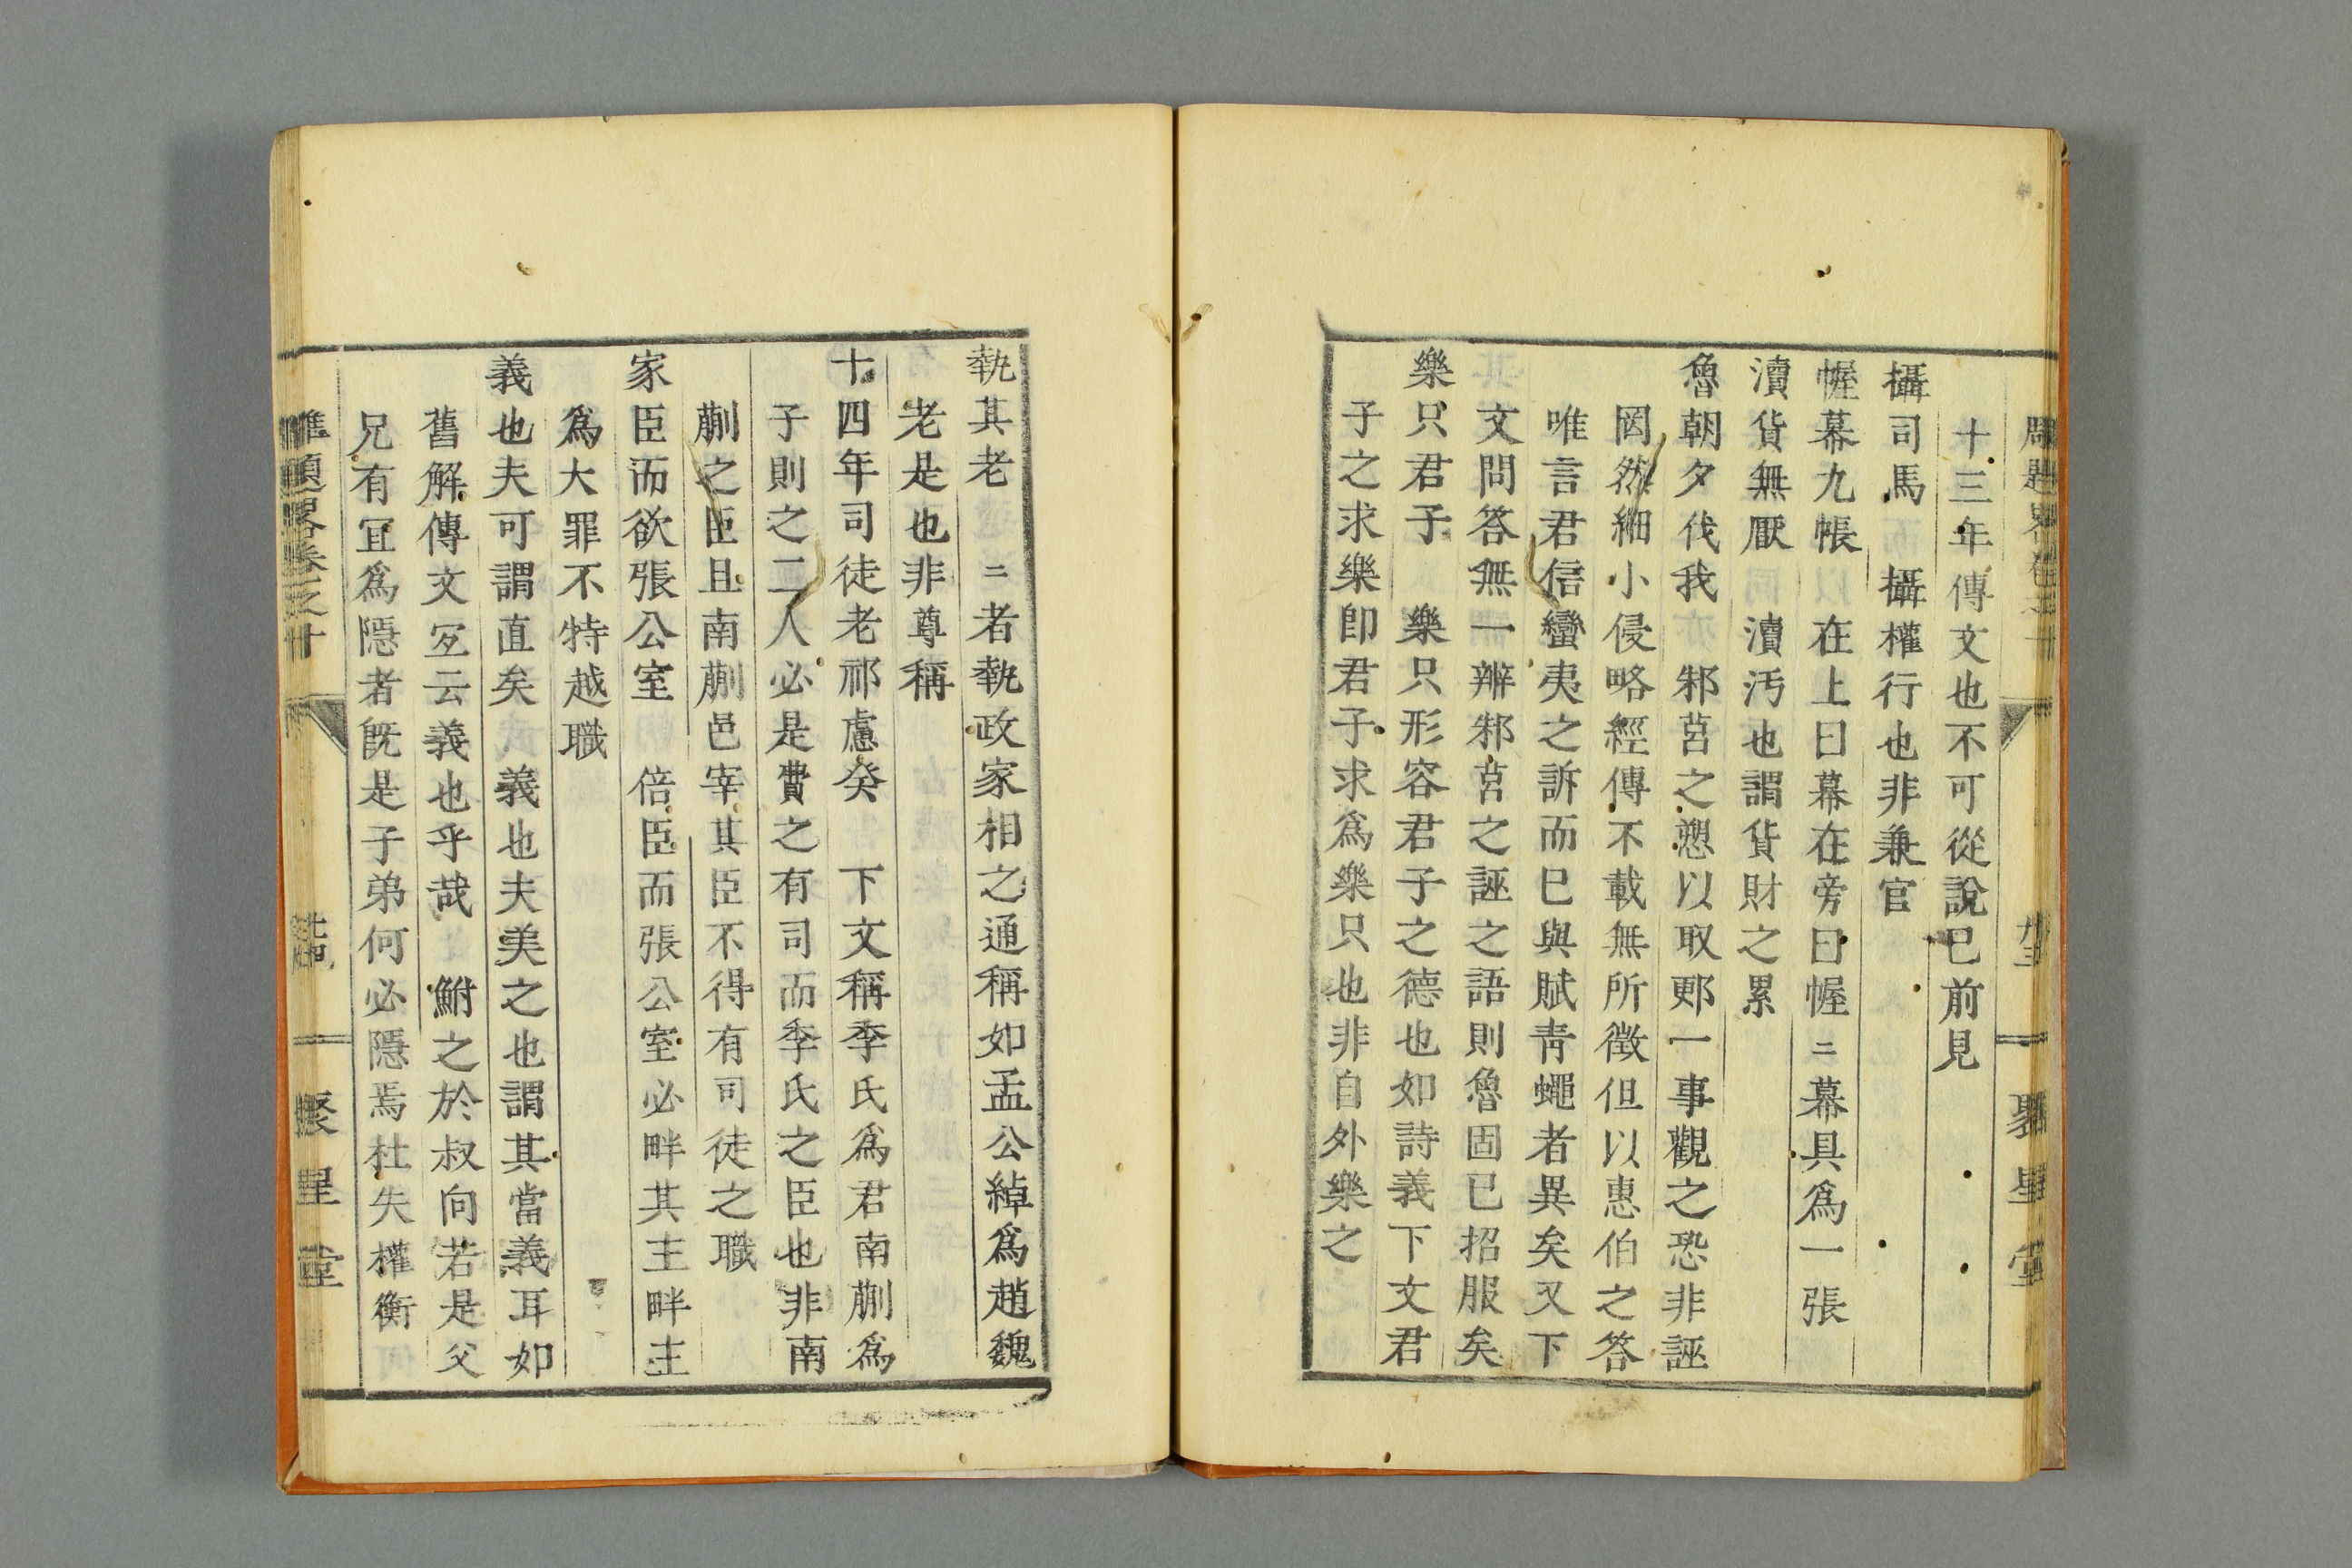 十三年傳文也不可從說已前見
攝司馬　攝權行也非兼官
幄幕九帳　在上曰幕在旁曰幄二幕具爲一張
瀆貨無厭　瀆汚也謂貨財之累
魯朝夕伐我　邾莒之愬以取郠一事觀之恐非誣
罔然細小侵略經傳不載無所徵但以惠伯之答
唯言君信蠻夷之訴而已與賦靑蠅者異矣又下
文問答無一辨邾莒之誣之語則魯固已招服矣
樂只君子　樂只形容君子之德也如詩義下文君
子之求樂卽君子求爲樂只也非自外樂之
聚星堂
執其老　二者執政家相之通稱如孟公綽爲趙魏
老是也非尊稱
十四年司徒老祁慮癸　下文稱季氏爲君南蒯爲
子則之二人必是費之有司而季氏之臣也非南
蒯之臣且南蒯邑宰其臣不得有司徒之職
家臣而欲張公室　倍臣而張公室必畔其主畔主
爲大罪不特越職
義也夫可謂直矣　義也夫美之也謂其當義耳如
舊解傳文宐云義也乎哉　鮒之於叔向若是父
兄有宐爲隱者旣是子弟何必隱焉杜失權衡
雕題畧卷之十
聚星堂